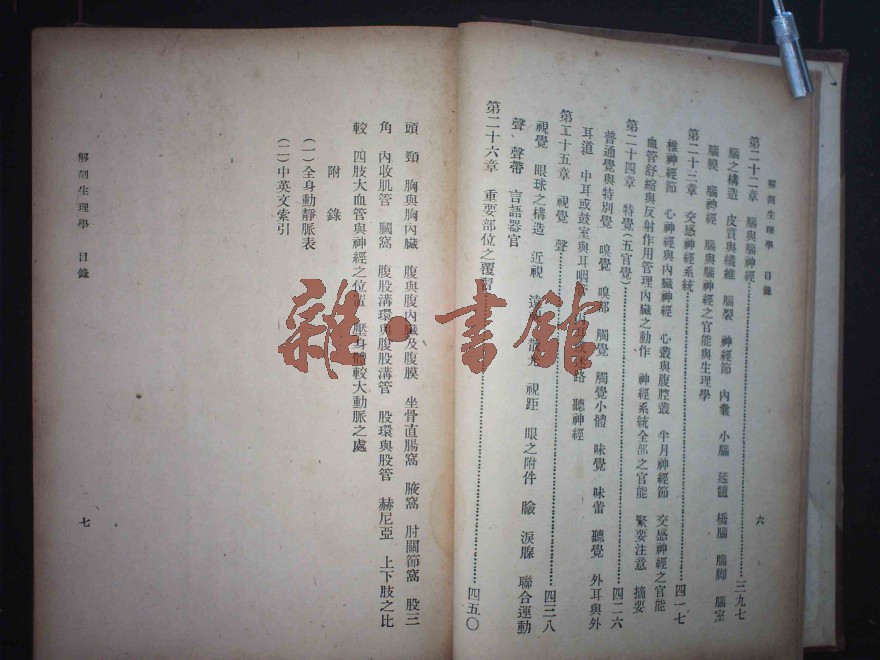 解剖生理學 目錄
六
第二十二章 腦與腦神經 三九七
腦之構造 皮質與纖維 腦裂 神經節 內囊 小腦 延髓 橋腦 腦脚 腦室
腦膜 腦神經 腦與腦神經之官能與生理學
第二十三章 交感神經系統 四一七
椎神經節 心神經與內臟神經 心叢與腹腔叢 半月神經節 交感神經之官能
血管舒縮與反射作用管理內臟之動作 神經系統全部之官能 緊要注意 摘要
第二十四章 特覺(五官覺) 四二六
普通覺與特別覺 嗅覺 嗅部 觸覺 觸覺小體 味覺 味蕾 聽覺 外耳與外
耳道 中耳或鼓室與耳咽 路 聽神經
第二十五章 視覺 聲 四三八
視覺 眼球之構造 近視 遠視 散光 視距 眼之附件 瞼 淚腺 聯合運動
聲 聲帶 言語器官
第二十六章 重要部位之覆習 四五〇
頭 頸 胸與胸內臟 腹與腹內臟及腹膜 坐骨直腸窩 腋窩 肘關節窩 股三
角 內收肌管 膕窩 腹股溝環與腹股溝管 股環與股管 赫尼亞 上下肢之比
較 四肢大血管與神經之位置 壓身體較大動脈之處
附錄
(一)全身動靜脈表
(二)中英文索引
解剖生理學 目錄
七
雜·書館